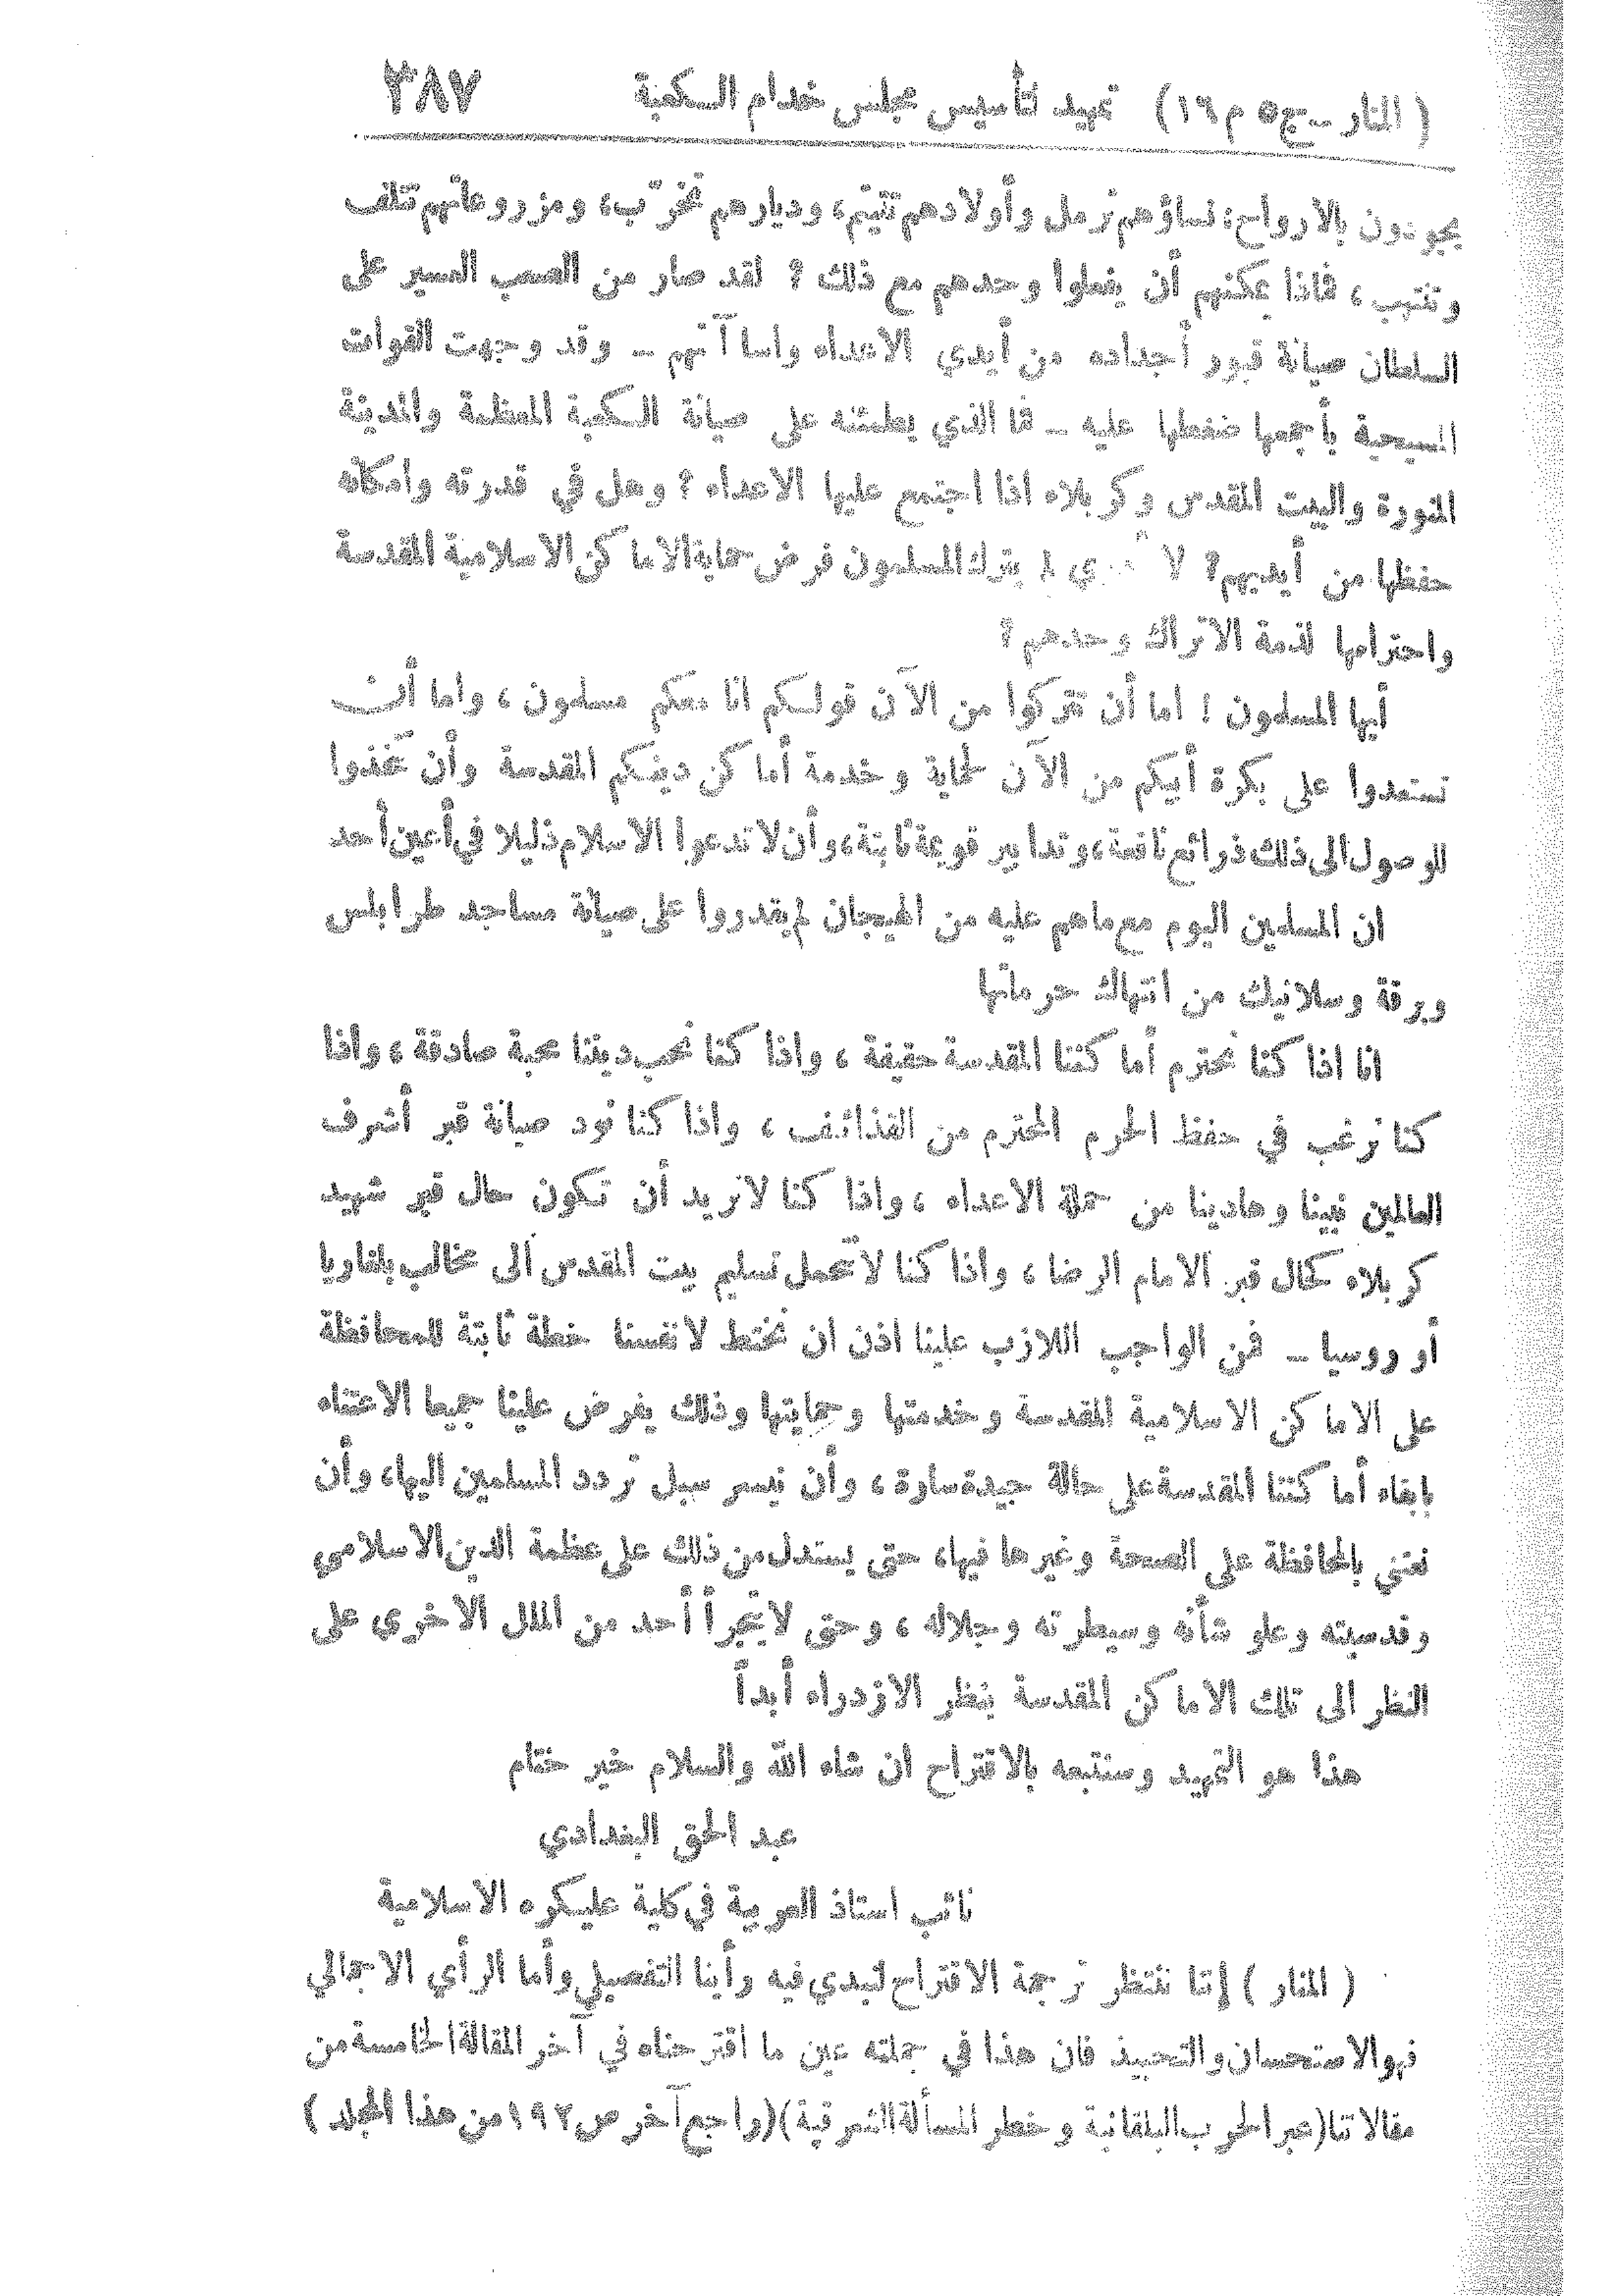 ( المنار ــ ج٥ م١٦ ) تمهيد لتأسيس مجلس خدام الكعبة ٣٨٧
يجودون بالارواح، نساؤهم ترمل وأولادهم تتيتم، وديارهم تخرّب، ومزروعاتهم تتلف
وتنتهب، فماذا يمكنهم أن يفعلوا وحدهم مع ذلك ؟ لقد صار من الصعب العسير على
السلطان صيانة قبور أجداده من أيدي الاعداء واساآتهم ــ وقد وجهت القوات
المسيحية بأجمعها ضغطها عليه ــ فما الذي يطمئنه على صيانة الكعبة المعظمة والمدينة
المنورة والبيت المقدس وكربلاء اذا اجتمع عليها الاعداء ؟ وهل في قدرته وامكانه
حفظها من أيديهم؟ لا لم يترك المسلمون فرض حماية الاماكن الاسلامية المقدسة
واحترامها لذمة الاتراك وحدهم ؟
أيها المسلمون ! اما أن تتركوا من الآن قولكم انا معكم مسلمون ، واما أن
تستعدوا على بكرة أبيكم من الآن لحماية وخدمة أماكن دينكم المقدسة وأن تتخذوا
للوصول الى ذلك ذرائع نافعة، وتدابير قويمة ثابتة، وأن لا تدعوا الاسلام ذليلا في أعين أحد
ان المسلمين اليوم مع ماهم عليه من الهيجان لم يقدروا على صيانة مساجد طرابلس
وبرقة وسلانيك من انتهاك حرماتها
انا اذا كنا نحترم أماكننا المقدسة حقيقة ، واذا كنا نحب ديننا محبة صادقة ، واذا
كنا نرغب في حفظ الحرم المحترم من القذائف ، واذا كنا نود صيانة قبر أشرف
العالمين نبينا وهادينا من حملة الاعداء ، واذا كنا لا نريد أن تكون حال قبر شهيد
كربلاء كحال قبر الامام الرضا ، واذا كنا لا نتحمل تسليم بيت المقدس الى مخالب بلغاريا
أو روسيا ــ فمن الواجب اللازب علينا اذن ان نختط لانفسنا خطة ثابتة للمحافظة
على الاماكن الاسلامية المقدسة وخدمتها وحمايتها وذلك يفرض علينا جميعا الاعتناء
بابقاء أماكننا المقدسة على حالة جيدة سارة ، وأن نيسر سبل تردد المسلمين اليها، وأن
نعتني بالمحافظة على الصحة وغيرها فيها، حتى يستدل من ذلك على عظمة الدين الاسلامي
وقدسيته وعلو شأنه وسيطرته وجلاله ، وحتى لا يتجرأ أحد من الملل الاخرى على
النظر الى تلك الاماكن المقدسة بنظر الازدراء أبداً
هذا هو التمهيد وسنتبعه بالاقتراح ان شاء الله والسلام خير ختام
عبد الحق البغدادي
نائب استاذ العربية في كلية عليكره الاسلامية
( المنار ) إننا ننتظر ترجمة الاقتراح لنبدي فيه رأينا التفصيلي وأما الرأي الاجمالي
فهو الاستحسان والتحبيذ فان هذا في جملته عين ما اقترحناه في آخر المقالة الخامسة من
مقالاتنا (عبر الحرب البلقانية وخطر المسألة الشرقية) (راجع آخر ص١٩٢ من هذا المجلد )